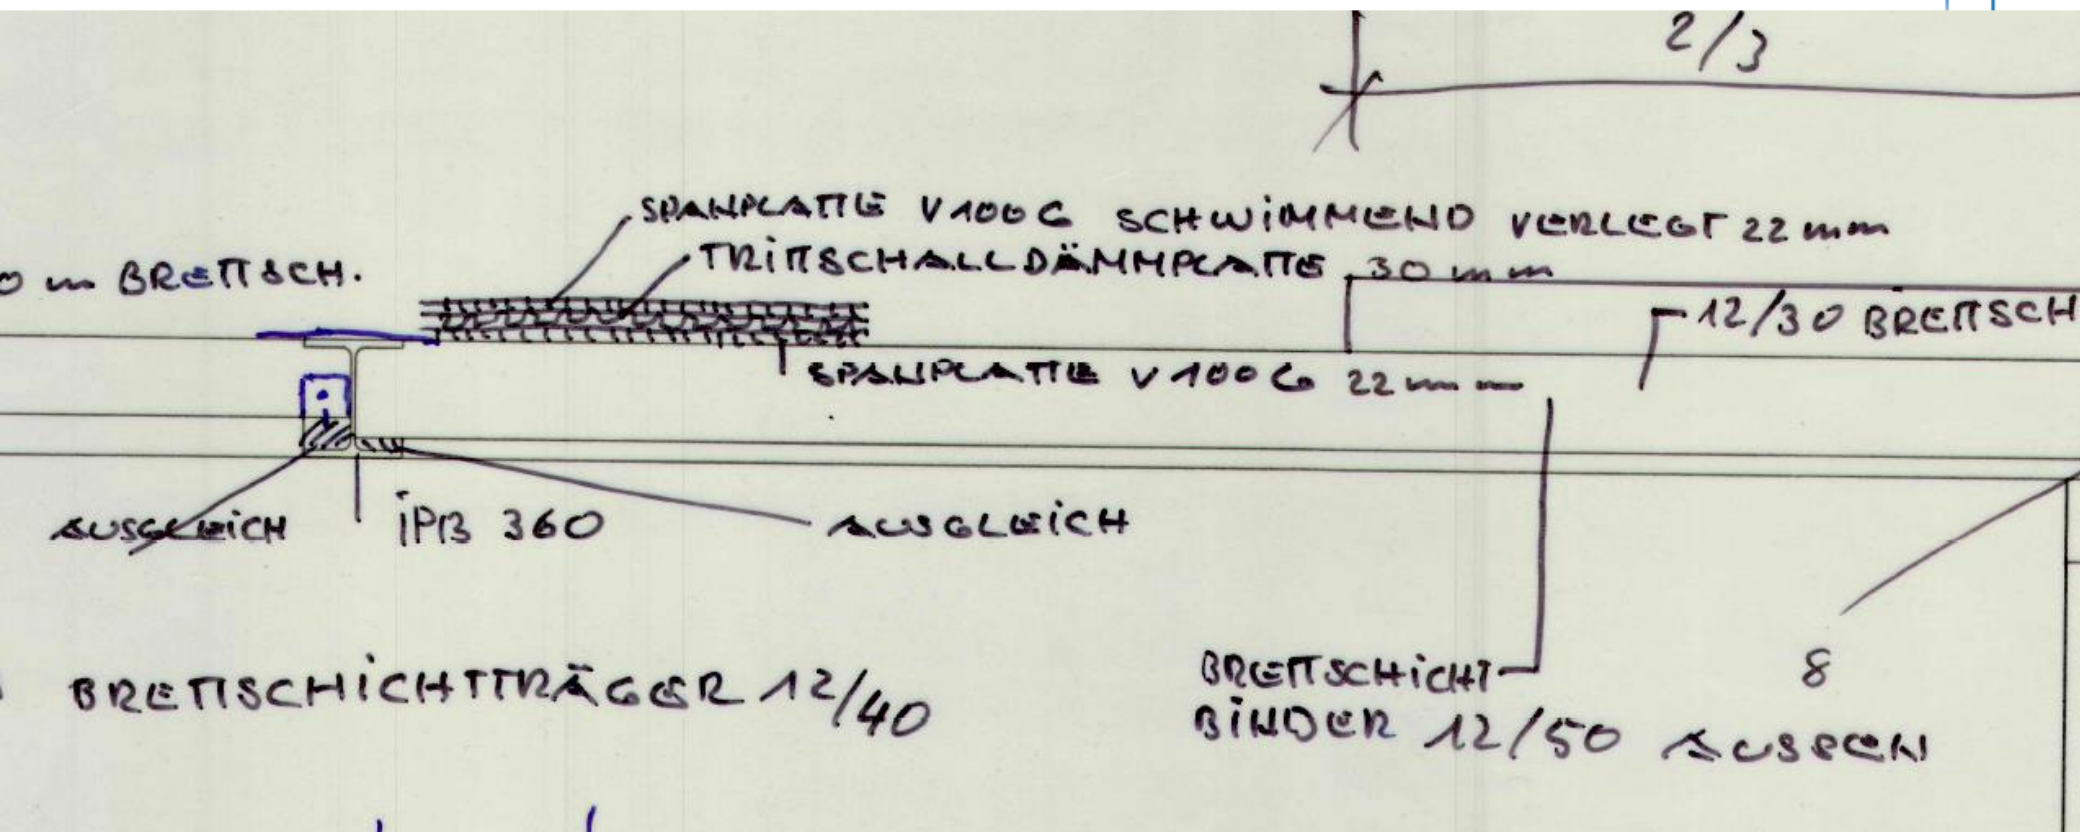 2/3
SPANPLATTE V100G SCHWIMMEND VERLEGT 22 mm
TRITTSCHALLDÄMMPLATTE 30 mm
0 m BRETTSCH.
12/30 BRETTSCH
SPANPLATTE V100G 22 mm
AUSGLEICH
iPB 360
AUSGLEICH
BRETTSCHICHTTRÄGER 12/40
BRETTSCHICHT
BINDER 12/50 AUSSEN
8